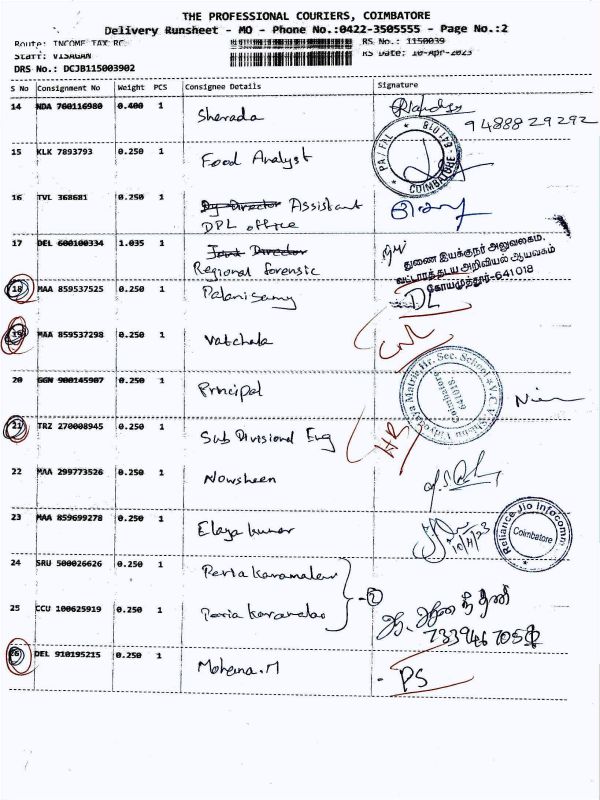 THE PROFESSIONAL COURIERS, COIMBATORE
Delivery Runsheet - MO - Phone No.:0422-3505555 - Page No.:2
Route: INCOME TAX RC RS No.: 1150039
Staff: VISAGAN RS Date: 10-Apr-2023
DRS No.: DCJB115003902
S No Consignment No Weight PCS Consignee Details Signature
14 NDA 760116980 0.400 1 Sharada
9488829292
15 KLK 7893793 0.250 1 Food Analyst
PA/FAL COIMBATORE
16 TVL 368681 0.250 1 Dy Director Assistant
DPL office
17 DEL 600100334 1.035 1 Joint Director
Regional forensic
துணை இயக்குநர் அலுவலகம்,
வட்டாரத்தடய அறிவியல் ஆய்வகம்
கோயமுத்தூர்-641018
18 MAA 859537525 0.250 1 Palanisamy DL
19 MAA 859537298 0.250 1 Vatchala CNL
20 GGN 900145907 0.250 1 Principal
Coimbatore 641018
21 TRZ 270008945 0.250 1 Sub Divisional Eng HR
22 MAA 299773526 0.250 1 Nowsheen
23 MAA 859699278 0.250 1 Elaya kumar
10/4/23
Reliance Jio Infocomm Coimbatore
24 SRU 500026626 0.250 1
25 CCU 100625919 0.250 1
26 DEL 910195215 0.250 1 Mohana.M PS